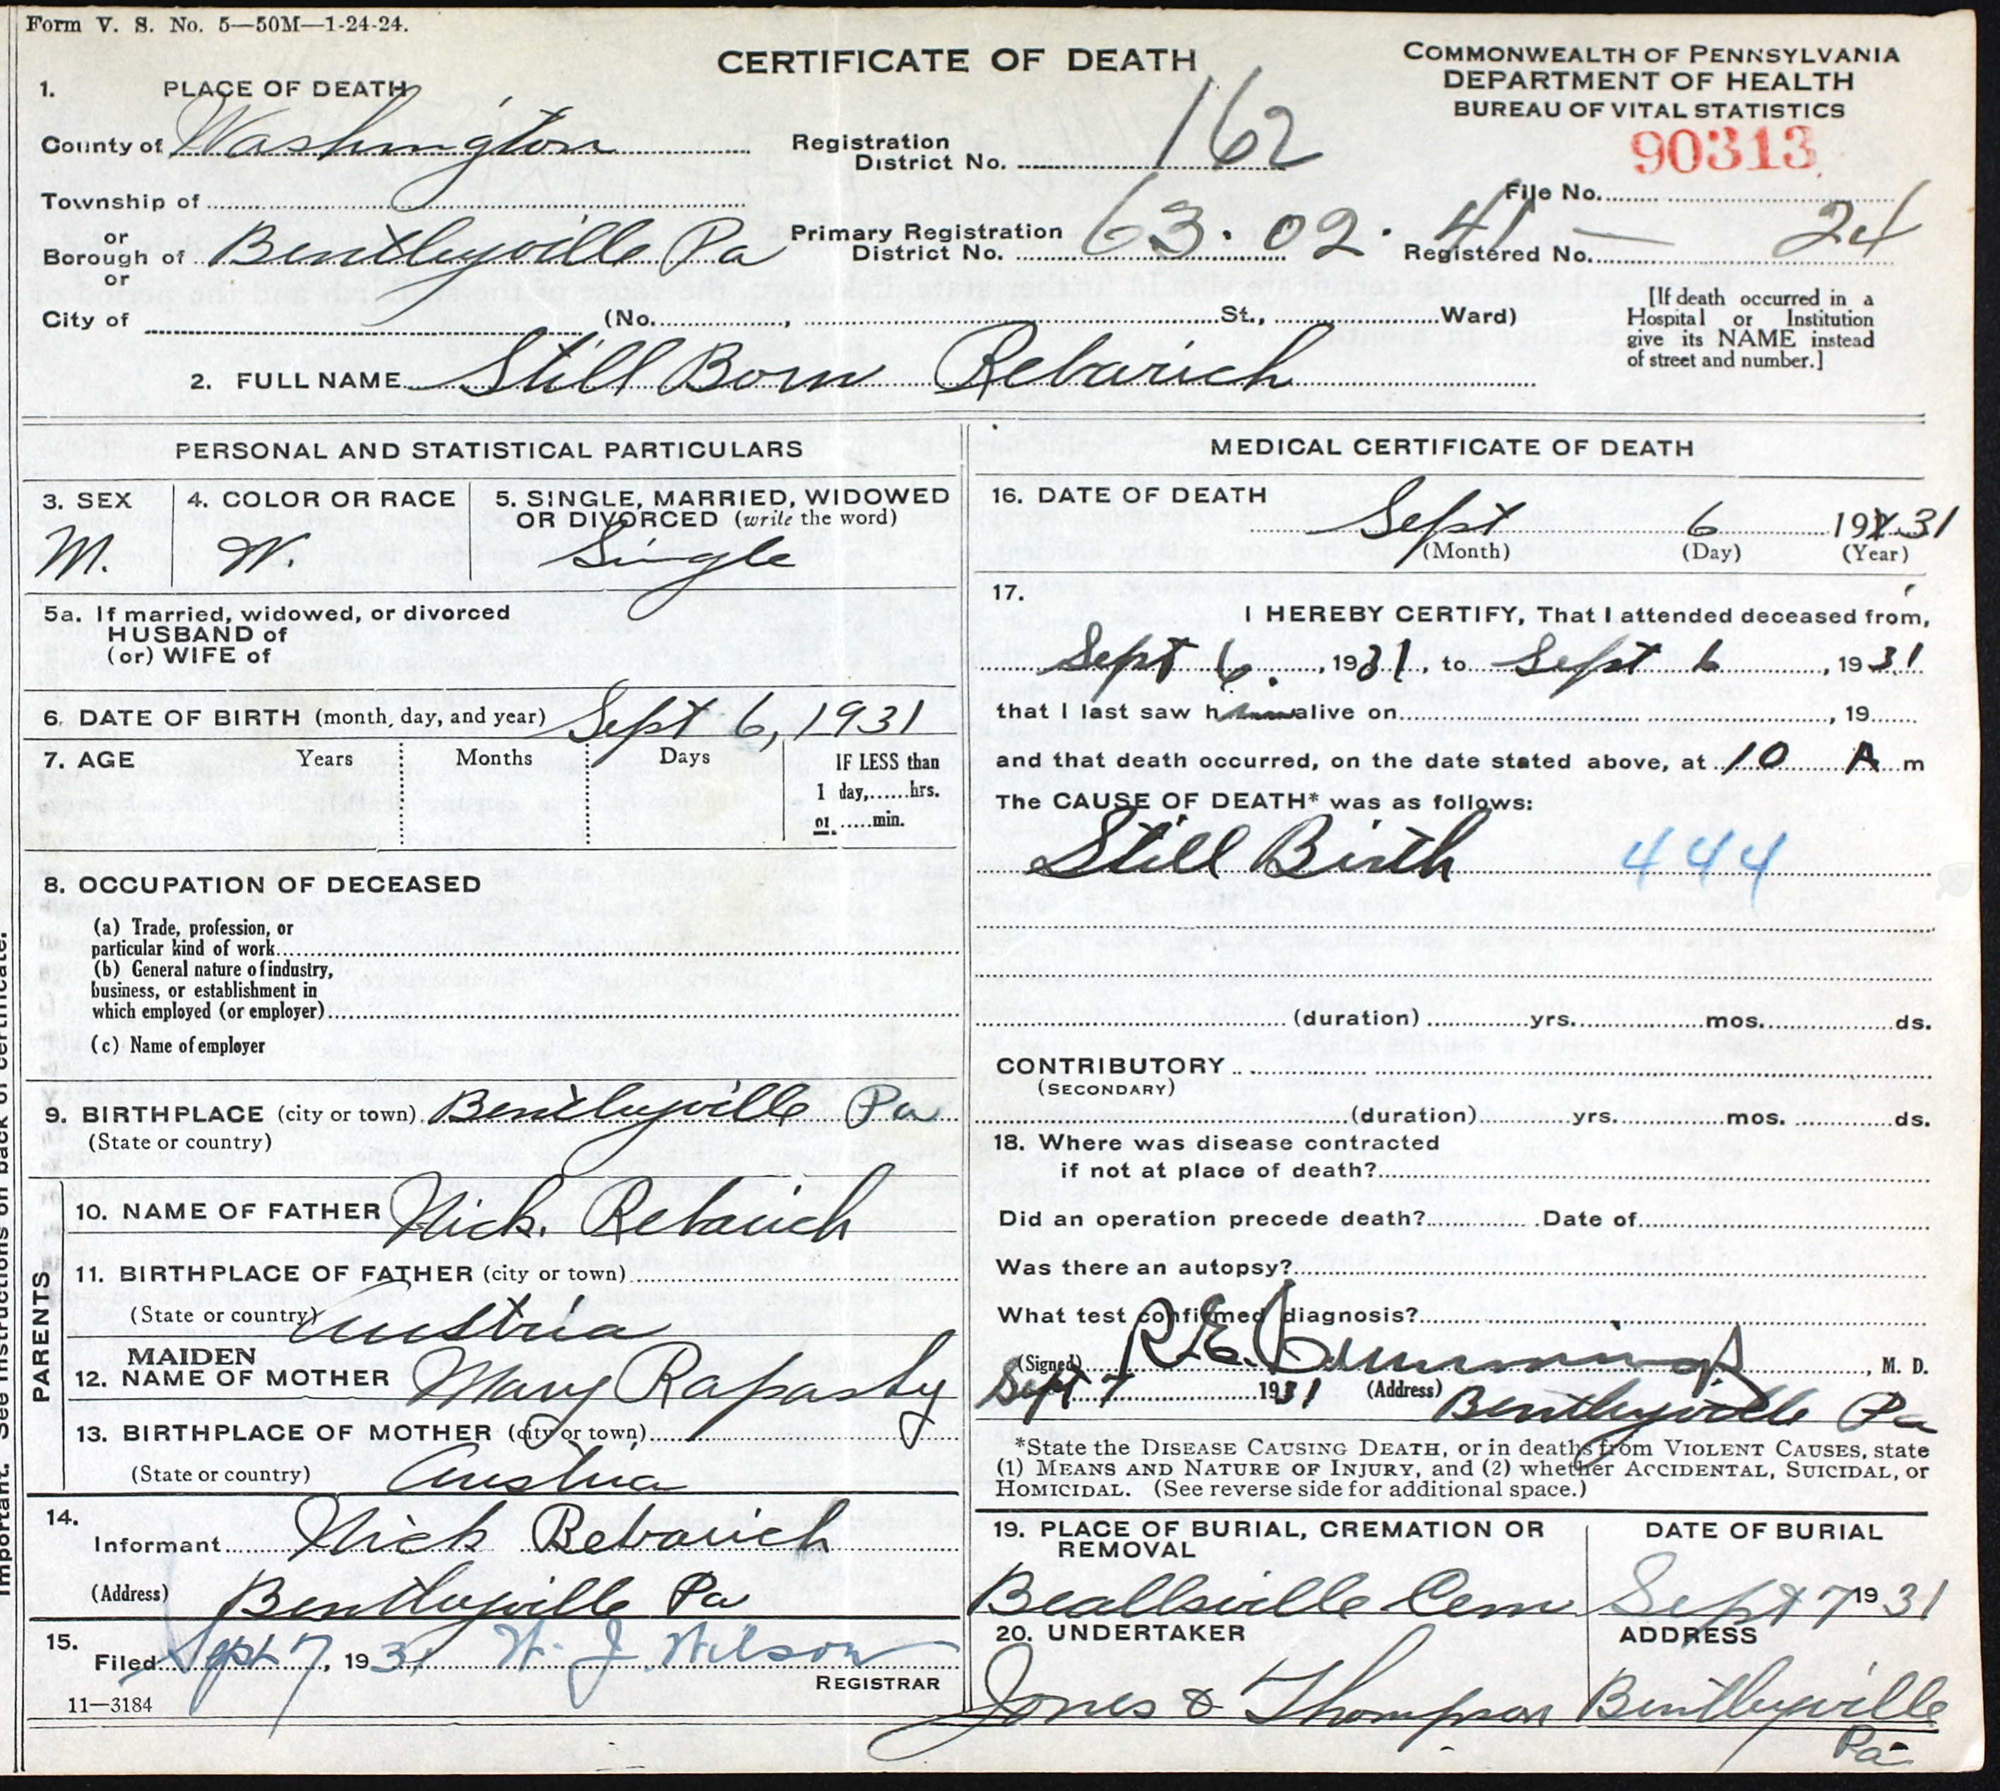 Form V. S. No. 5—50M—1-24-24.
CERTIFICATE OF DEATH
COMMONWEALTH OF PENNSYLVANIA
DEPARTMENT OF HEALTH
BUREAU OF VITAL STATISTICS
90313
1. PLACE OF DEATH
County of Washington
Registration District No. 162
File No.
Township of
or
Borough of Bentleyville Pa
or
Primary Registration District No. 63.02.41 —
Registered No. 24
City of (No. , St., Ward)
[If death occurred in a
Hospital or Institution
give its NAME instead
of street and number.]
2. FULL NAME Still Born Rebarich
PERSONAL AND STATISTICAL PARTICULARS
3. SEX
M.
4. COLOR OR RACE
W.
5. SINGLE, MARRIED, WIDOWED
OR DIVORCED (write the word)
Single
5a. If married, widowed, or divorced
HUSBAND of
(or) WIFE of
6. DATE OF BIRTH (month, day, and year) Sept 6, 1931
7. AGE Years Months Days
IF LESS than
1 day,......hrs.
or ......min.
8. OCCUPATION OF DECEASED
(a) Trade, profession, or
particular kind of work
(b) General nature of industry,
business, or establishment in
which employed (or employer)
(c) Name of employer
9. BIRTHPLACE (city or town) Bentleyville Pa
(State or country)
PARENTS
10. NAME OF FATHER Nick. Rebarich
11. BIRTHPLACE OF FATHER (city or town)
(State or country) Austria
MAIDEN
12. NAME OF MOTHER Mary
13. BIRTHPLACE OF MOTHER (city or town)
(State or country) Austria
14.
Informant Nick Rebarich
(Address) Bentleyville Pa
15.
Filed Sept 7, 1931 W. J. Wilson
REGISTRAR
11—3184
MEDICAL CERTIFICATE OF DEATH
16. DATE OF DEATH
Sept 6 1931
(Month) (Day) (Year)
17.
I HEREBY CERTIFY, That I attended deceased from,
Sept 6. , 1931, to Sept 6 , 1931
that I last saw h alive on , 19
and that death occurred, on the date stated above, at 10 A m
The CAUSE OF DEATH* was as follows:
Still Birth 444
(duration) yrs. mos. ds.
CONTRIBUTORY
(SECONDARY)
(duration) yrs. mos. ds.
18. Where was disease contracted
if not at place of death?
Did an operation precede death? Date of
Was there an autopsy?
What test confirmed diagnosis?
(Signed) R. E. Cummings , M. D.
Sept 7 1931 (Address) Bentleyville Pa
*State the DISEASE CAUSING DEATH, or in deaths from VIOLENT CAUSES, state
(1) MEANS AND NATURE OF INJURY, and (2) whether ACCIDENTAL, SUICIDAL, or
HOMICIDAL. (See reverse side for additional space.)
19. PLACE OF BURIAL, CREMATION OR
REMOVAL
Beallsville Cem
DATE OF BURIAL
Sept 7 1931
20. UNDERTAKER
Jones & Thompson
ADDRESS
Bentleyville
Pa
important. See instructions on back of certificate.